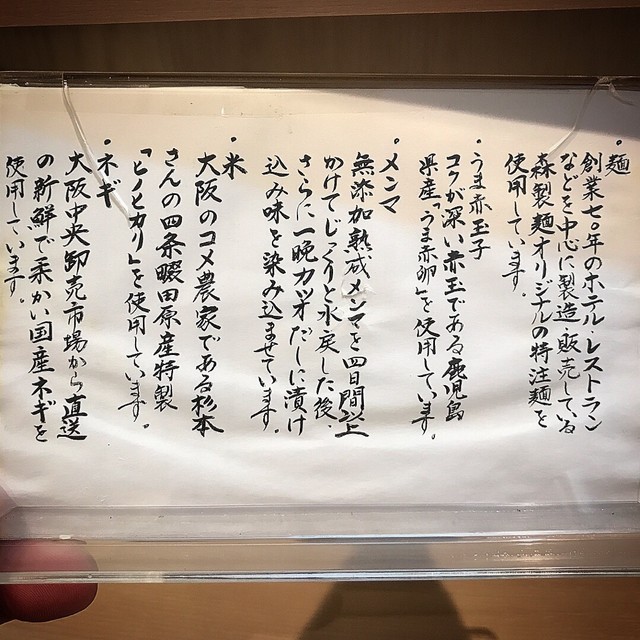 ・麺
創業七〇年のホテル・レストラン
などを中心に製造・販売している
森製麺オリジナルの特注麺を
使用しています。
・うま赤玉子
コクが深い赤玉である鹿児島
県産「うま赤卵」を使用しています。
・メンマ
無添加熟成メンマを四日間以上
かけてじっくりと水戻した後、
さらに一晩カツオだしに漬け
込み味を染み込ませています。
・米
大阪のコメ農家である杉本
さんの四条畷田原産特製
「ヒノヒカリ」を使用しています。
・ネギ
大阪中央卸売市場から直送
の新鮮で柔かい国産ネギを
使用しています。